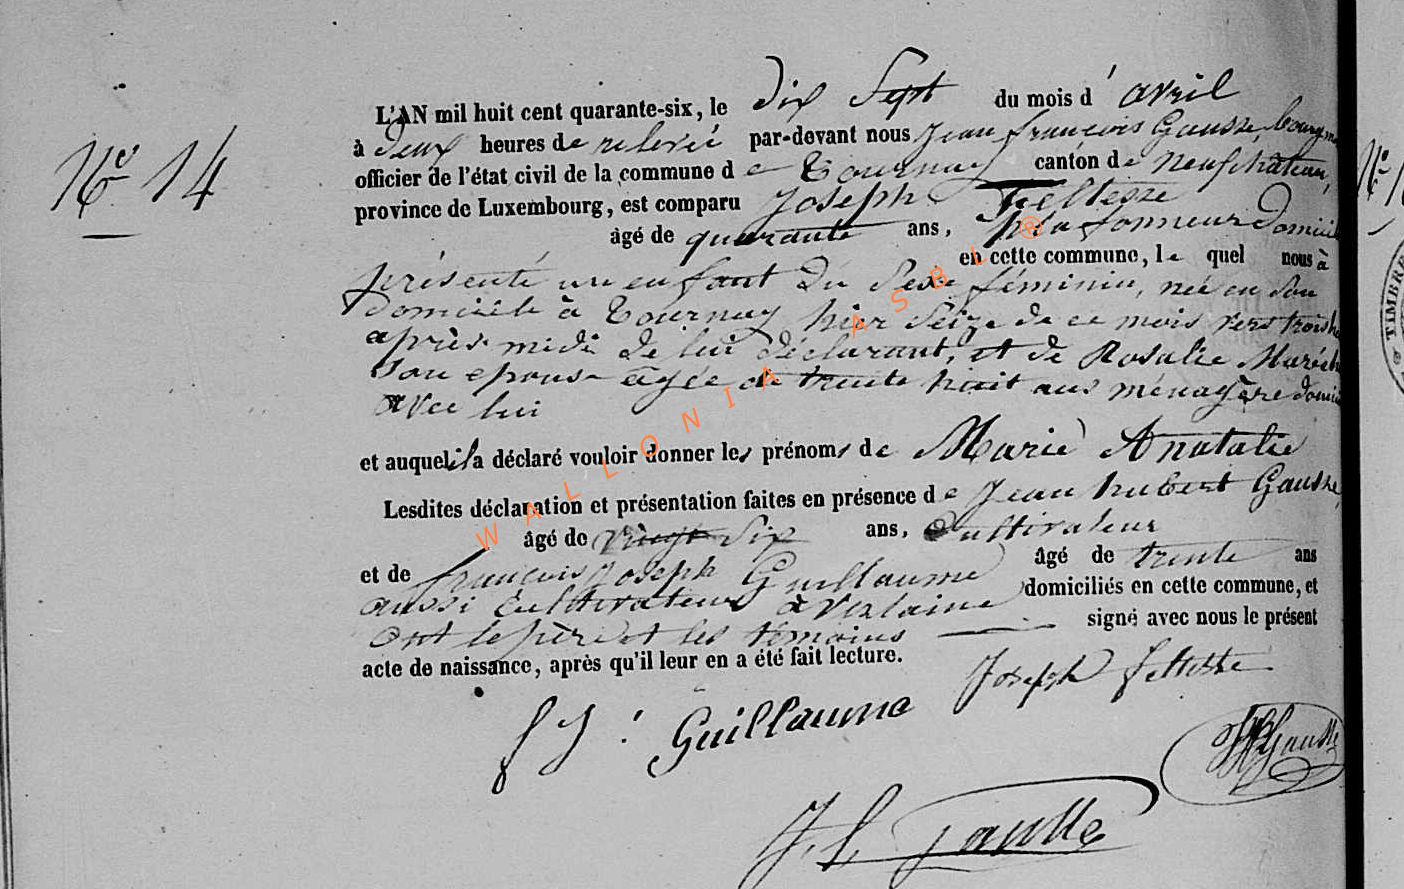 L'AN mil huit cent quarante-six, le dix Sept du mois d'avril
No 14
à deux heures de relevée par-devant nous Jean françois Gausse,
officier de l'état civil de la commune de Tournay canton de neufchâteau,
province de Luxembourg, est comparu Joseph
âgé de quarante ans,
en cette commune, lequel nous à
présenté un enfant du Sexe féminin, née en Son
domicile à Tournay hier Seize de ce mois vers trois
après-midi de lui déclarant, et de Rosalie
Son epouse âgée de trente huit ans ménagère
avec lui
et auquel il a déclaré vouloir donner les prénoms de Marie Anatalie
Lesdites déclaration et présentation faites en présence de Jean hubert Gausse,
âgé de vingt Six ans, Cultivateur
et de françois Joseph Guillaume âgé de trente ans
aussi Cultivateur à Verlaine domiciliés en cette commune, et
ont le père et les témoins signé avec nous le présent
acte de naissance, après qu'il leur en a été fait lecture.
Joseph
f J : Guillaume
Gausse
J. f. Gausse
WALLONIA ASBL ®
TIMBRE